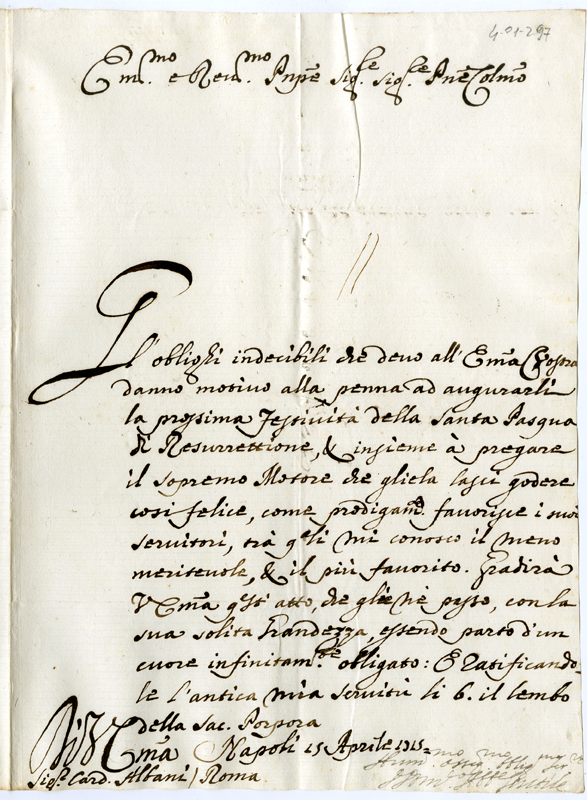 4-01-297
Em.mo e Reu.mo Pnpē Sig.re Sig.re Pnē Colmō
Gl'oblighi indecibili che deuo all'Emā Vostra
danno motiuo alla penna ad augurarli
la prossima Festiuità della Santa Pasqua
di Resurrettione, & insieme à pregare
il sopremo Motore che gliela lasci godere
cosi felice, come prodigam.te fauorisce i suoi
seruitori, trà q.li mi conosco il meno
meriteuole, & il più fauorito. Gradirà
V Emā q.st'atto, che gliē n'è
con la
sua solita Grandezza, essendo parto d'un
cuore infinitam.te obligato: E ratificando-
le l'antica mia seruitù li b. il lembo
della Sac. Porpora
Di V Emā Napoli 15 Aprile 1715
Sig.r Card. Albani / Roma